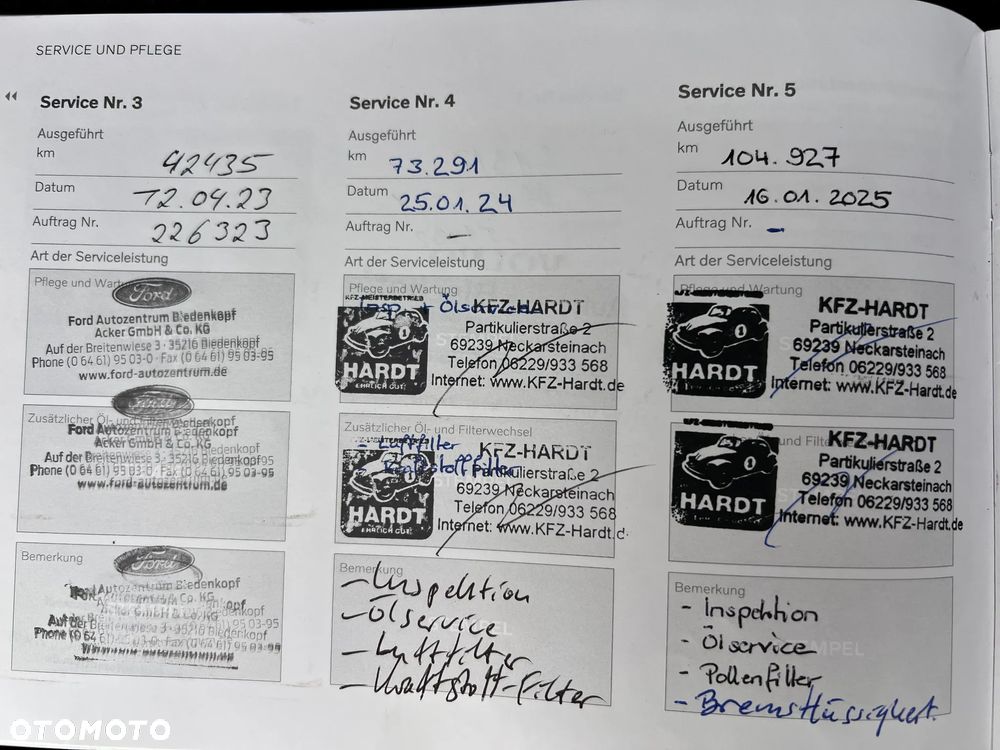 SERVICE UND PFLEGE
Service Nr. 3
Ausgeführt
km 42435
Datum 12.04.23
Auftrag Nr. 226323
Art der Serviceleistung
Pflege und Wartung
Ford
Ford Autozentrum Biedenkopf
Acker GmbH & Co. KG
Auf der Breitenwiese 3 · 35216 Biedenkopf
Phone (0 64 61) 95 03-0 · Fax (0 64 61) 95 03-95
www.ford-autozentrum.de
Zusätzlicher Öl- und Filterwechsel
Ford
Ford Autozentrum Biedenkopf
Acker GmbH & Co. KG
Auf der Breitenwiese 3 · 35216 Biedenkopf
Phone (0 64 61) 95 03-0 · Fax (0 64 61) 95 03-95
www.ford-autozentrum.de
Bemerkung
Ford
Autozentrum Biedenkopf
Acker GmbH & Co. KG
Auf der Breitenwiese 3 · 35216 Biedenkopf
Phone (0 64 61) 95 03-0 · Fax (0 64 61) 95 03-95
Service Nr. 4
Ausgeführt
km 73.291
Datum 25.01.24
Auftrag Nr. –
Art der Serviceleistung
Pflege und Wartung
KFZ-MEISTERBETRIEB
Insp. + Ölservice
1
HARDT
EHRLICH GUT!
KFZ-HARDT
Partikulierstraße 2
69239 Neckarsteinach
Telefon 06229/933 568
Internet: www.KFZ-Hardt.de
Zusätzlicher Öl- und Filterwechsel
- Luftfilter
- Kraftstofffilter
HARDT
EHRLICH GUT!
KFZ-HARDT
Partikulierstraße 2
69239 Neckarsteinach
Telefon 06229/933 568
Internet: www.KFZ-Hardt.d
Bemerkung
- Inspektion
- Ölservice
- Luftfilter
- Kraftstoff-Filter
Service Nr. 5
Ausgeführt
km 104.927
Datum 16.01.2025
Auftrag Nr. –
Art der Serviceleistung
Pflege und Wartung
1
HARDT
KFZ-HARDT
Partikulierstraße 2
69239 Neckarsteinach
Telefon 06229/933 568
Internet: www.KFZ-Hardt.de
und Filter
1
HARDT
KFZ-HARDT
Partikulierstraße 2
69239 Neckarsteinach
Telefon 06229/933 568
Internet: www.KFZ-Hardt.de
Bemerkung
- Inspektion
- Ölservice
- Pollenfilter
- Bremsflüssigkeit
OTOMOTO